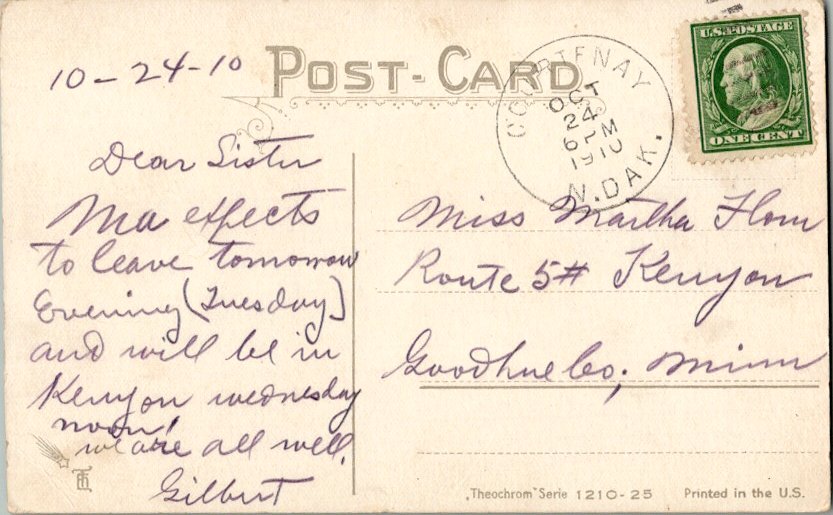 10-24-10
POST-CARD
COURTENAY
OCT
24
6 PM
1910
N.DAK.
U.S. POSTAGE
ONE CENT
Dear Sister
Ma expects
to leave tomorrow
Evening (Tuesday)
and will be in
Kenyon wednesday
noon!
we are all well.
Gilbert
Miss Martha Flom
Route 5# Kenyon
Goodhue Co; Minn
„Theochrom" Serie 1210-25
Printed in the U.S.